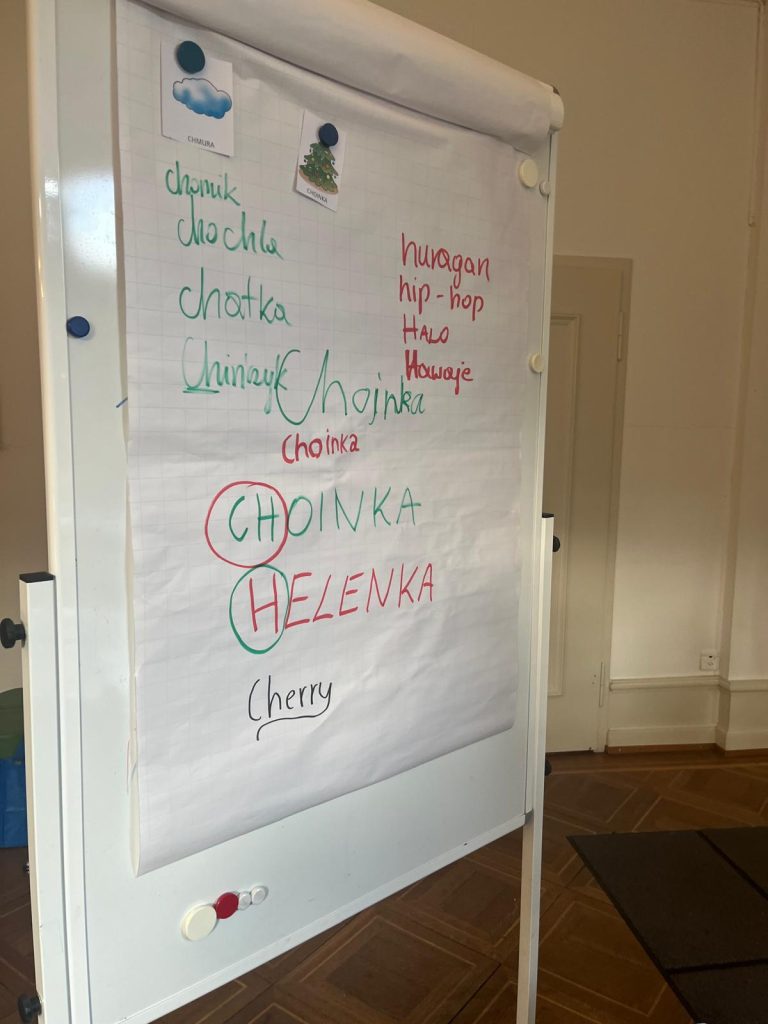 CHMURA
CHOINKA
chomik
chochla
chatka
Chińczyk
Chojnka
huragan
hip-hop
HALO
Hawaje
Choinka
CHOINKA
HELENKA
Cherry